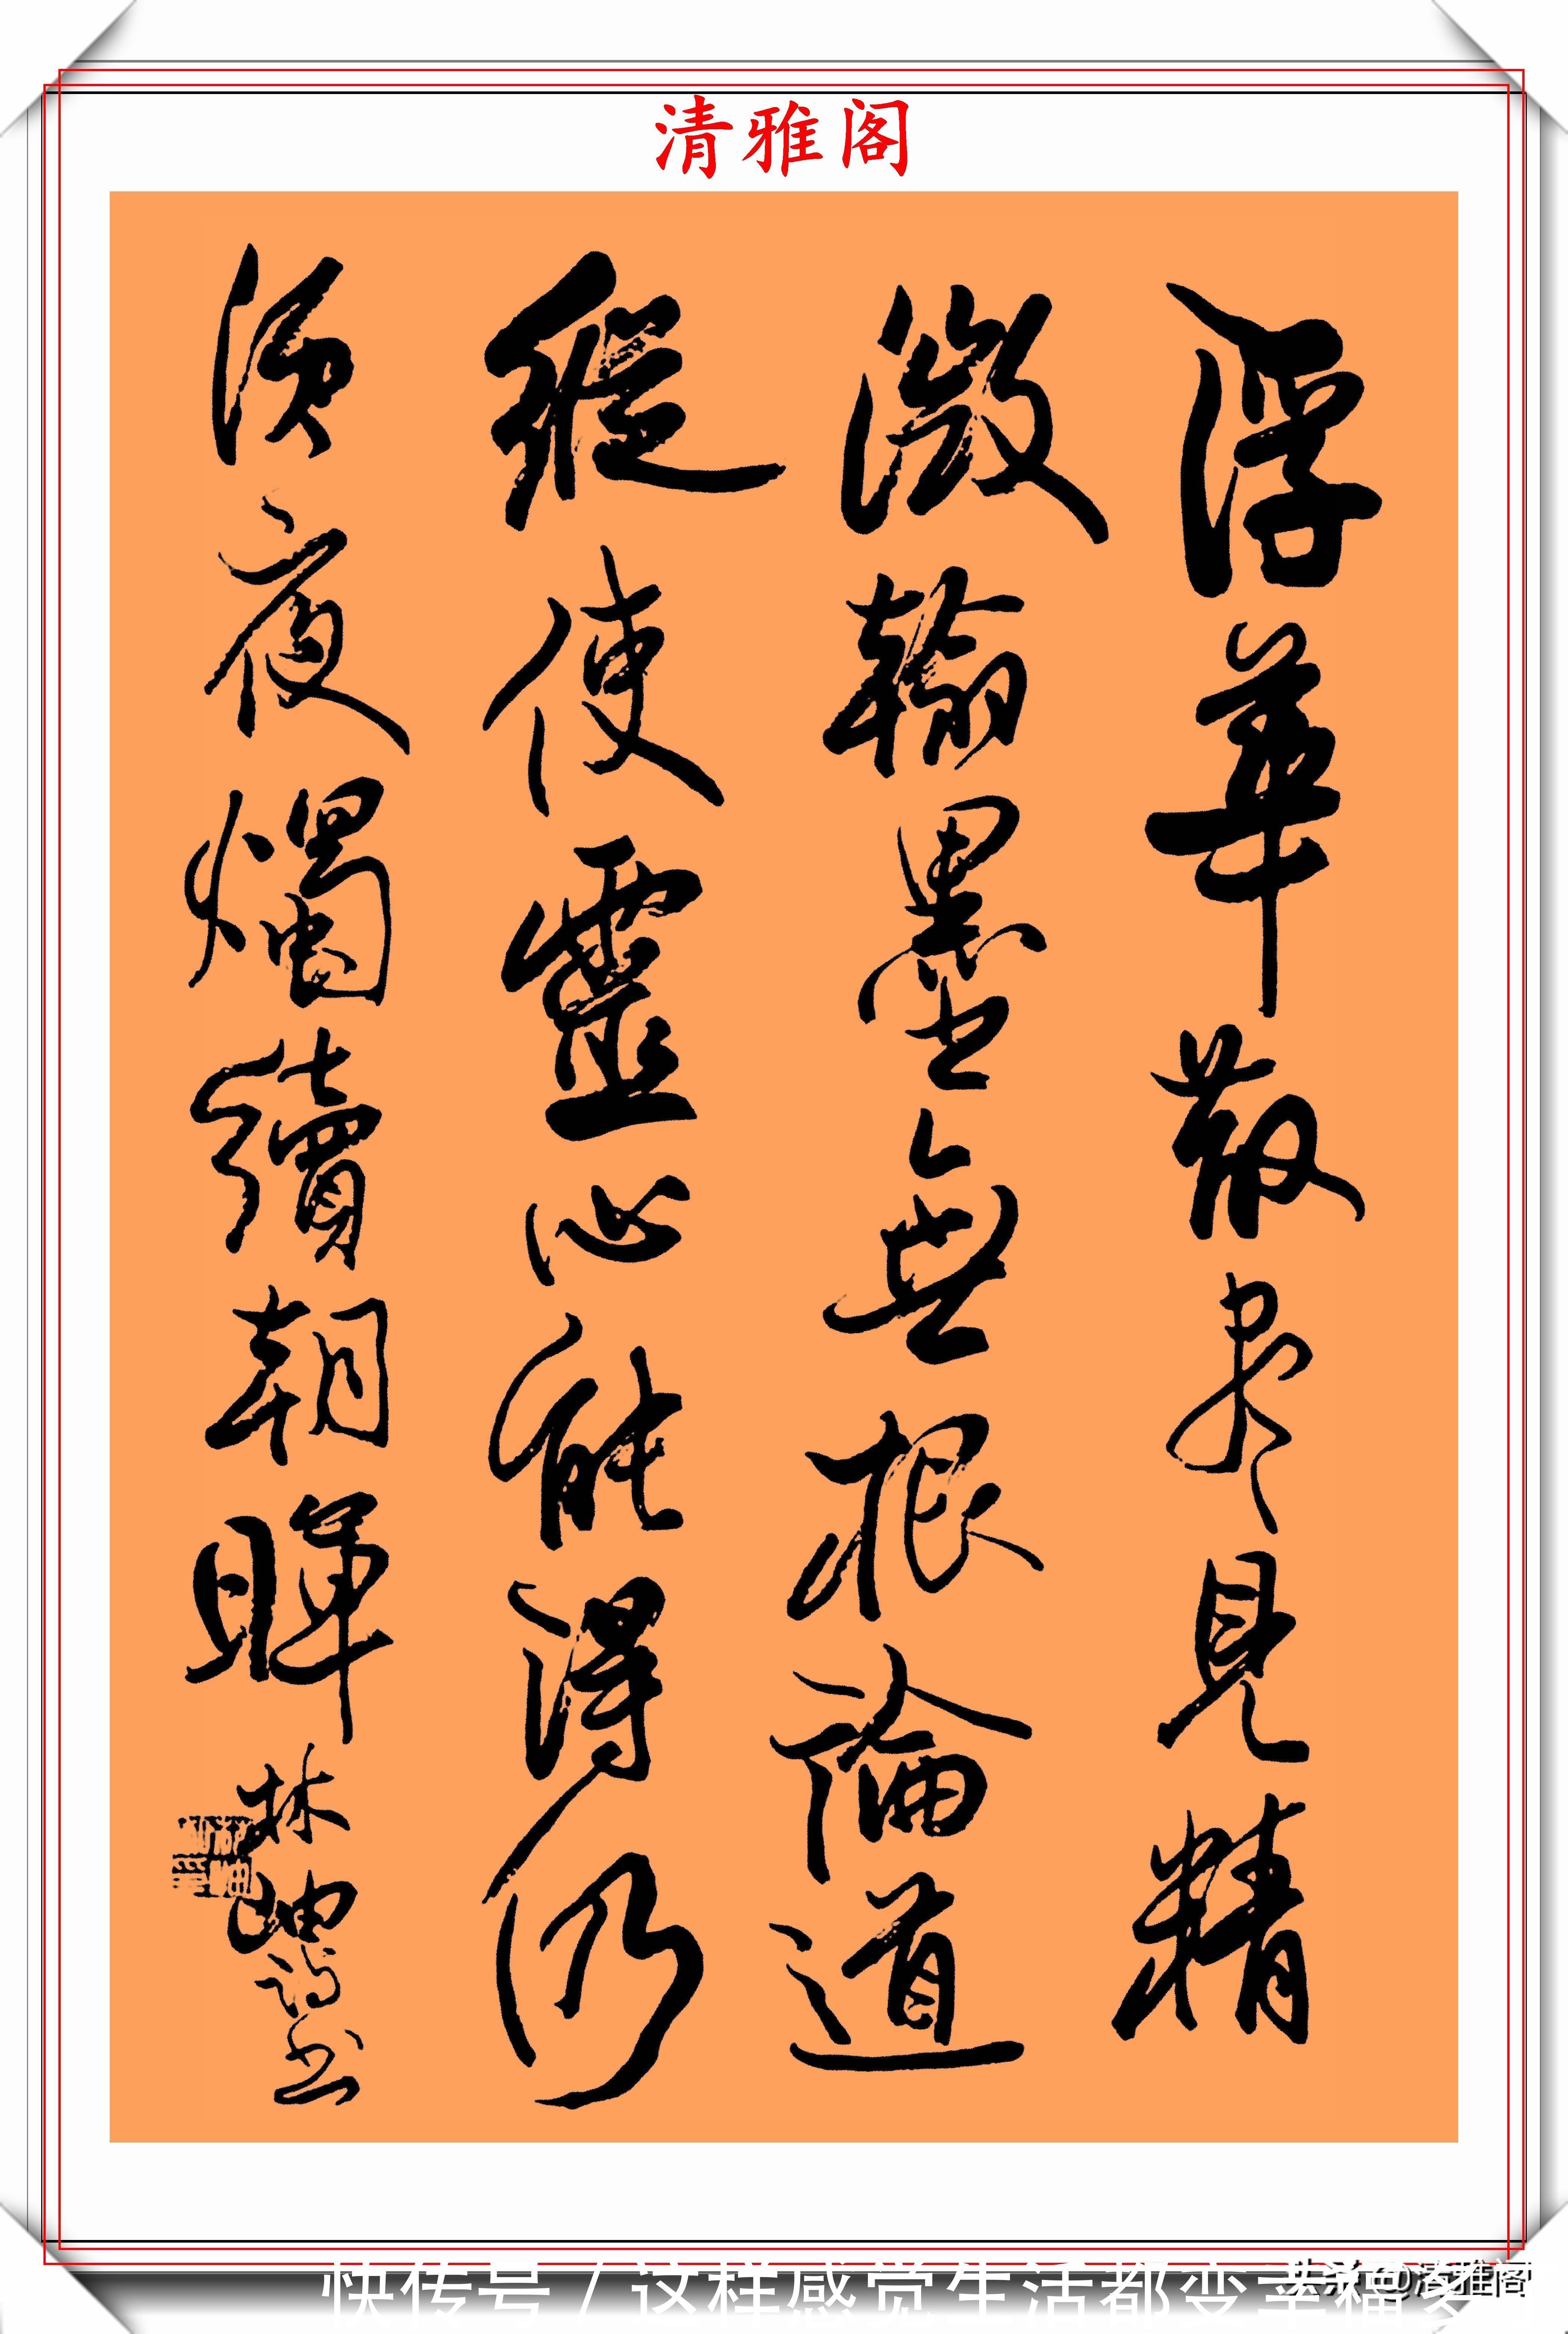 清雅阁
浮華散盡見精
微翰墨無根論道
縱使靈心能得仍
須夜燭續朝暉
林岫詩书
快传号 / 这样感觉生活都变幸福多
头条@清雅阁